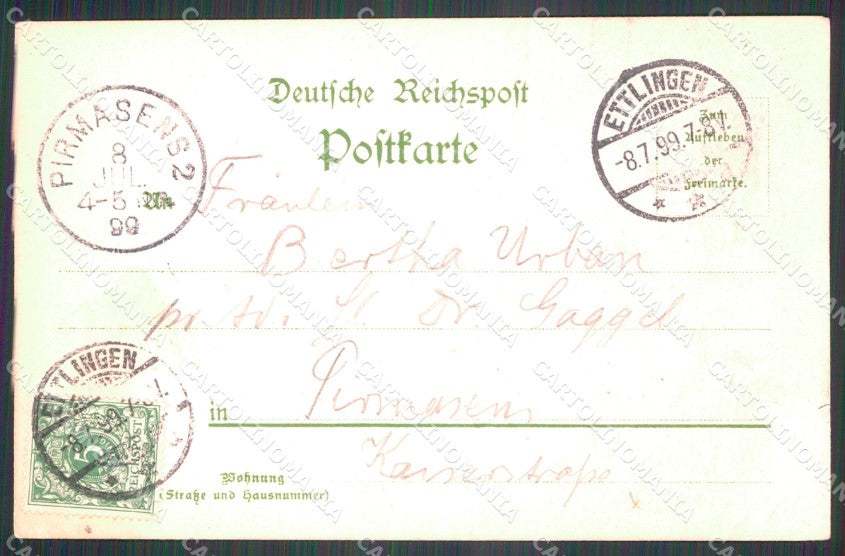 Deutsche Reichspost
Postkarte
PIRMASENS 2
8
JUL.
4-5
99
ETTLINGEN
-8.7.99.7-8V.
Zum
Aufkleben
der
Freimarke.
An
Fräulein
Bertha Urban
pr. Adr. H. Dr. Gaggel
Pirmasens
in
Kaiserstraße
Wohnung
(Straße und Hausnummer)
ETTLINGEN
8.7.99
5
REICHSPOST
CARTOLINOMANIA